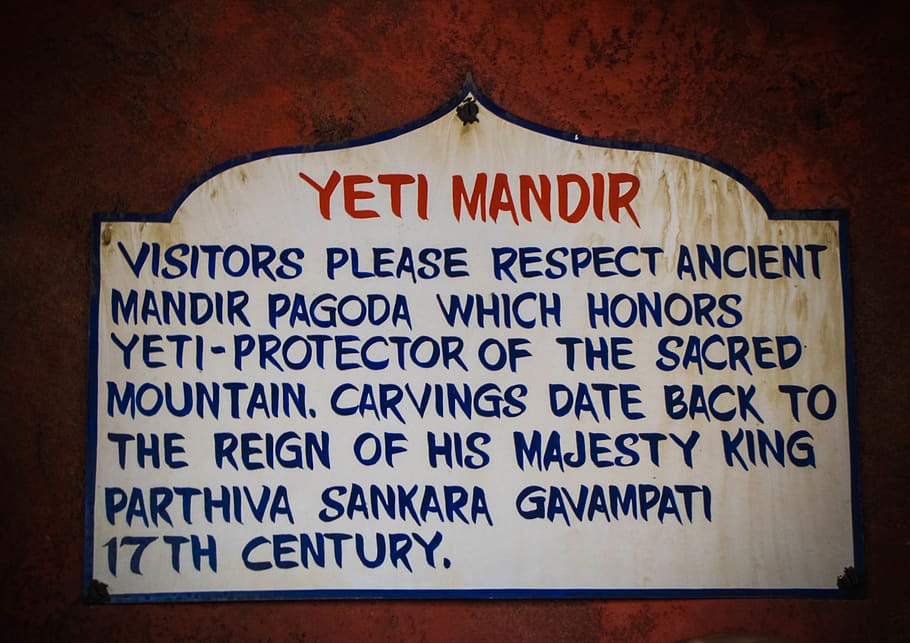 YETI MANDIR
VISITORS PLEASE RESPECT ANCIENT
MANDIR PAGODA WHICH HONORS
YETI-PROTECTOR OF THE SACRED
MOUNTAIN. CARVINGS DATE BACK TO
THE REIGN OF HIS MAJESTY KING
PARTHIVA SANKARA GAVAMPATI
17TH CENTURY.